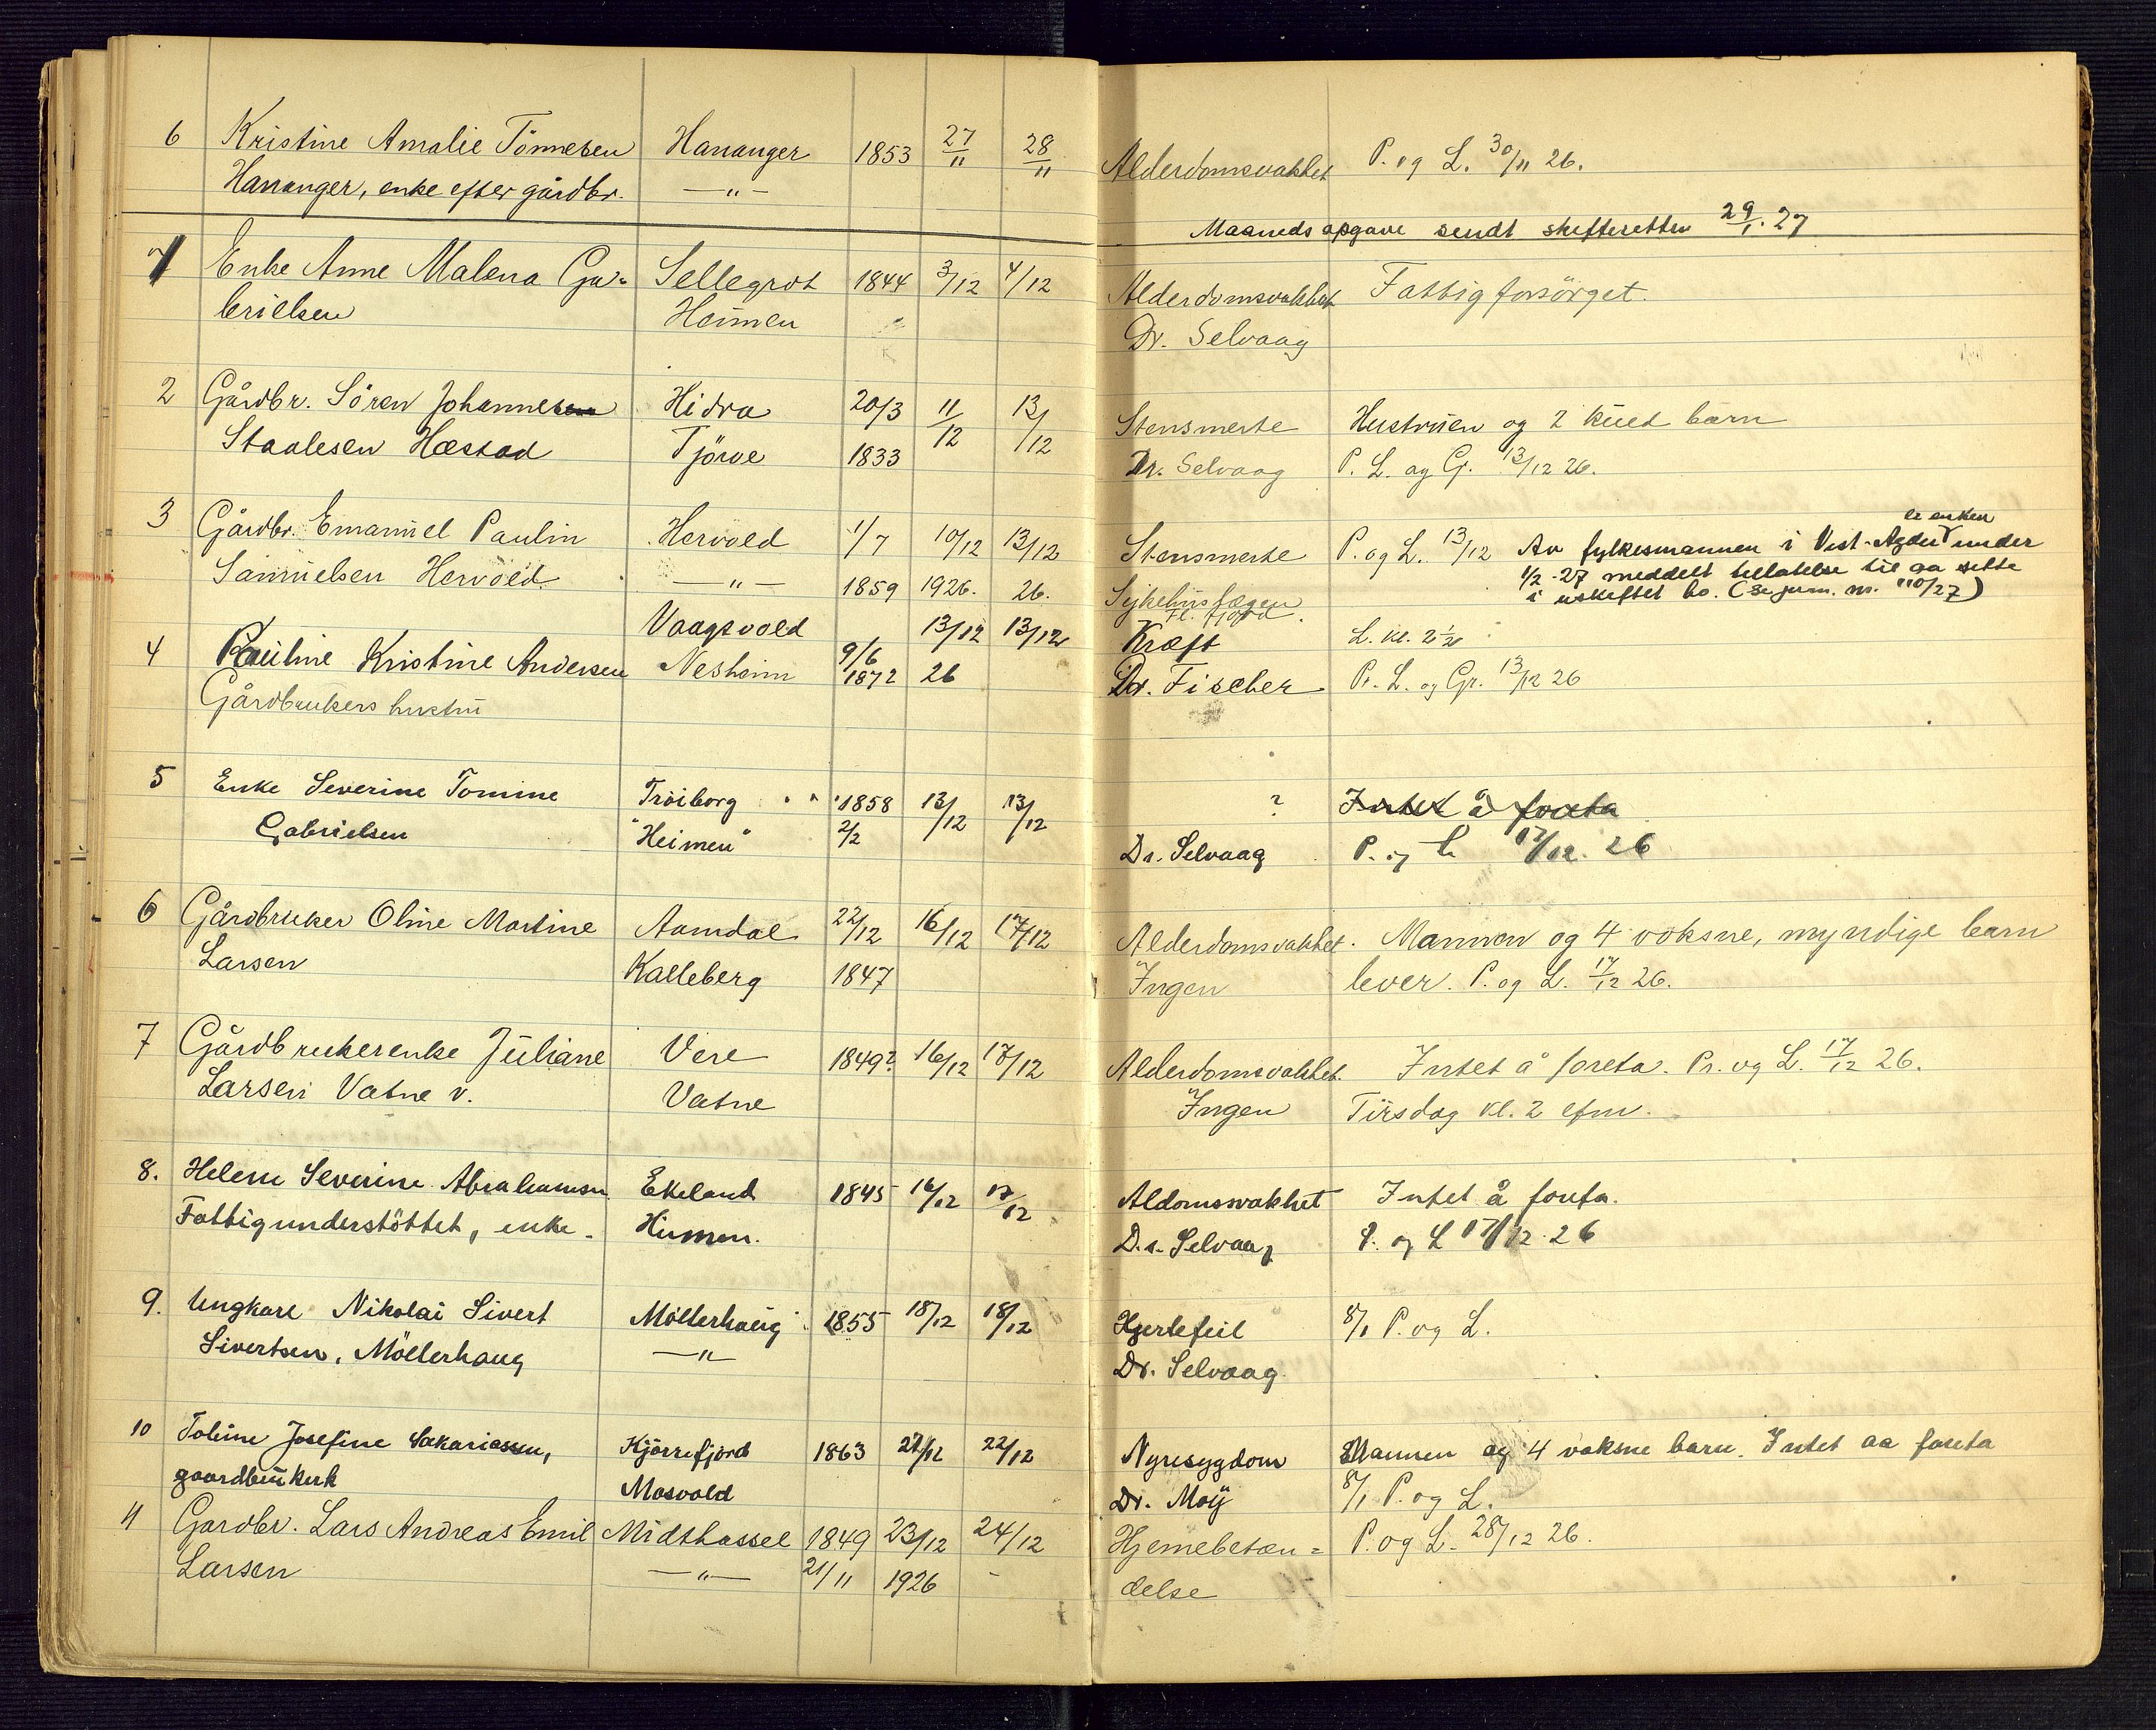 6 Kristine Amalie Tönnesen Hananger 1853 27/11 28/11 Alderdomsvakhet P. og L. 30/11 26.
Hananger, enke efter gårdbr. —"—
Maanedsopgave sendt skifteretten 29/1. 27
1 Enke Anne Malena Ga- Sellegrot 1844 3/12 4/12 Alderdomsvakhet Fattigforsörget.
brielsen Heimen Dr. Selvaag
2 Gårdbr. Sören Johannesen Hidra 20/3 11/12 13/12 Stensmerte Hustruen og 2 kuld barn
Staalesen Hæstad Tjörve 1833 Dr. Selvaag P. L. og G. 13/12 26.
3 Gårdbr. Emanuel Paulin Hervold 1/7 10/12 13/12 Stensmerte P. og L. 13/12 Av fylkesmannen i Vest-Agder er enken under
Samuelsen Hervold —"— 1859 1926. 26. Sykehuslægen 1/2-27 meddelt tillatelse til aa sitte
Fl. fjord. i uskiftet bo. (Se jurn. nr. 110/27)
4 Pauline Kristine Andersen Vaagsvold 9/6 13/12 13/12 Kræft L. kl. 2 1/2
Gårdbrukers hustru Nesheim 1872 26 Dr. Fischer Pr. L. og Gr. 13/12 26
5 Enke Severine Tomine Tröiborg 1858 13/12 13/12 ? Intet å foreta
Gabrielsen "Heimen" 2/2 Dr. Selvaag P. og L. 17/12. 26
6 Gårdbruker Oline Martine Aamdal 22/12 16/12 17/12 Alderdomsvakhet. Mannen og 4 voksne, myndige barn
Larsen Kalleberg 1847 Ingen lever. P. og L. 17/12 26.
7 Gårdbrukerenke Juliane Vere 1849? 16/12 17/12 Alderdomsvakhet. Intet å foreta. Pr. og L. 17/12 26.
Larsen Vatne v. Vatne Ingen Tirsdag kl. 2 efm.
8. Helene Severine Abrahamsen Ekeland 1845 16/12 17/12 Aldomsvakhet Intet å foreta.
Fattigunderstöttet, enke. Heimen. Dr. Selvaag P. og L 17/12 26
9. Ungkare Nikolai Sivert Möllerhaug 1855 18/12 18/12 Hjertefeil 8/1 P. og L.
Sivertsen, Möllerhaug —"— Dr. Selvaag
10 Toline Josefine Sakariassen, Kjörrefjord 1863 22/12 22/12 Nyresygdom Mannen og 4 voksne barn. Intet aa foreta
gaardbrukerk Mosvold Dr. Moÿ 8/1 P. og L.
11 Gardbr. Lars Andreas Emil Midthassel 1849 23/12 24/12 Hjernebetæn= P. og L. 28/12 26.
Larsen —"— 21/11 1926 delse